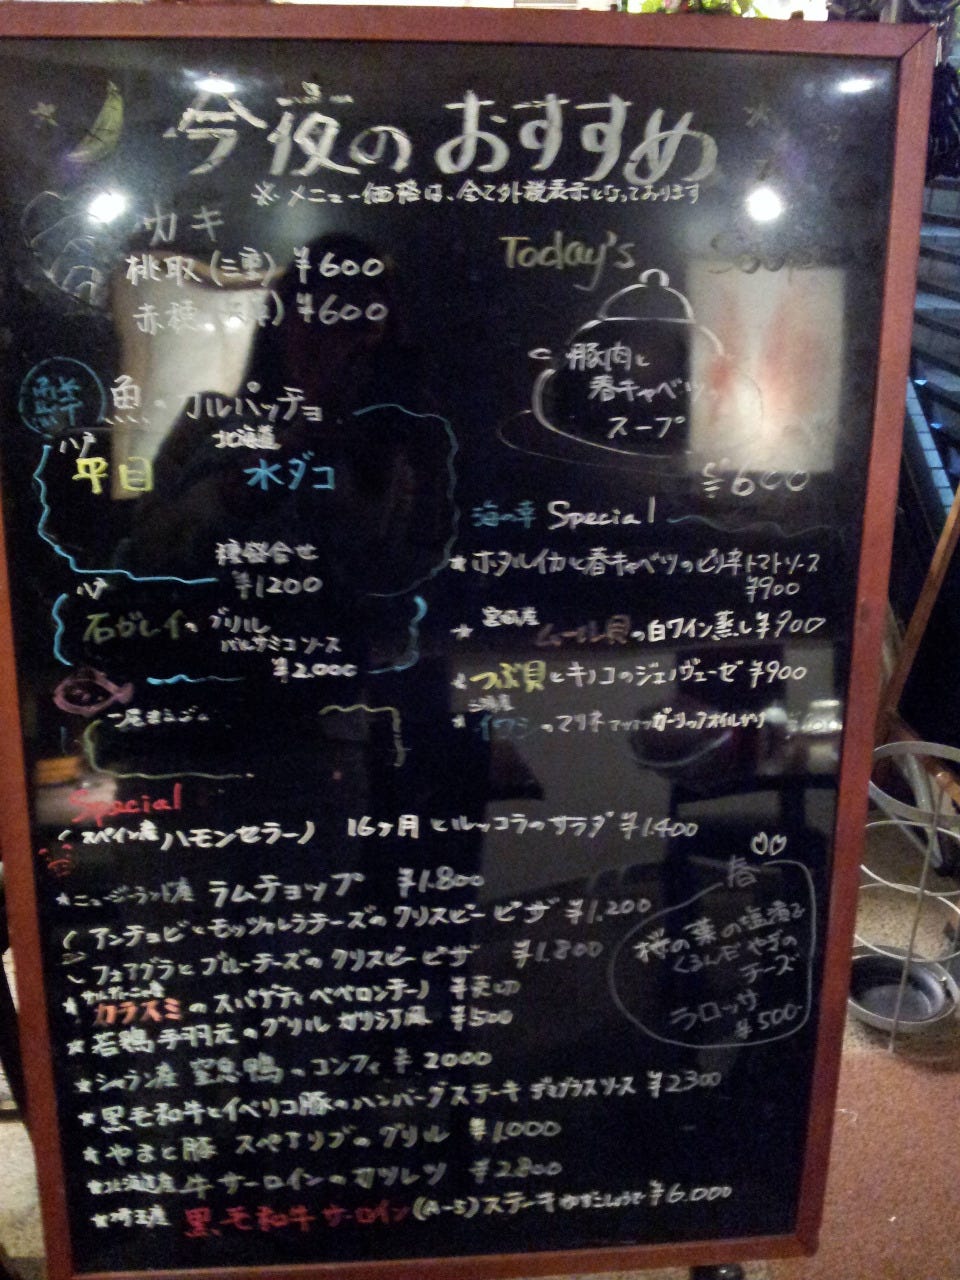 今夜のおすすめ
※メニュー価格は、全て外税表示となっております
カキ
桃取(三重) ¥600
赤穂 ¥600
Today's Soup
豚肉と
春キャベツ
スープ
¥600
鮮魚のカルパッチョ
北海道
平目 水ダコ
¥1200
石ガレイのグリル
バルサミコソース
¥2,000
海の幸 Special
★ホタルイカと春キャベツのピリ辛トマトソース
¥900
宮城産
★ムール貝の白ワイン蒸し ¥900
つぶ貝とキノコのジェノヴェーゼ ¥900
イワシのマリネ アツアツガーリックオイルがけ
Special
スペイン産 ハモンセラーノ 16ヶ月とルッコラのサラダ ¥1.400
★ニュージーランド産 ラムチョップ ¥1.800
アンチョビとモッツァレラチーズのクリスピーピザ ¥1,200
フォアグラとブルーチーズのクリスピーピザ ¥1.800
カラスミのスパゲティペペロンチーノ
★若鶏手羽元のグリル ガリシア風 ¥500
★シャラン産 窒息鴨のコンフィ ¥2000
★黒毛和牛とイベリコ豚のハンバーグステーキ デミグラスソース ¥2300
★やまと豚 スペアリブのグリル ¥1.000
★北海道産牛サーロインのカツレツ ¥2800
★埼玉産 黒毛和牛サーロイン(A-5)ステーキ ゆずこしょうで ¥6.000
春
桜の葉の塩漬で
くるんだやぎの
チーズ
ラロッサ
¥500-